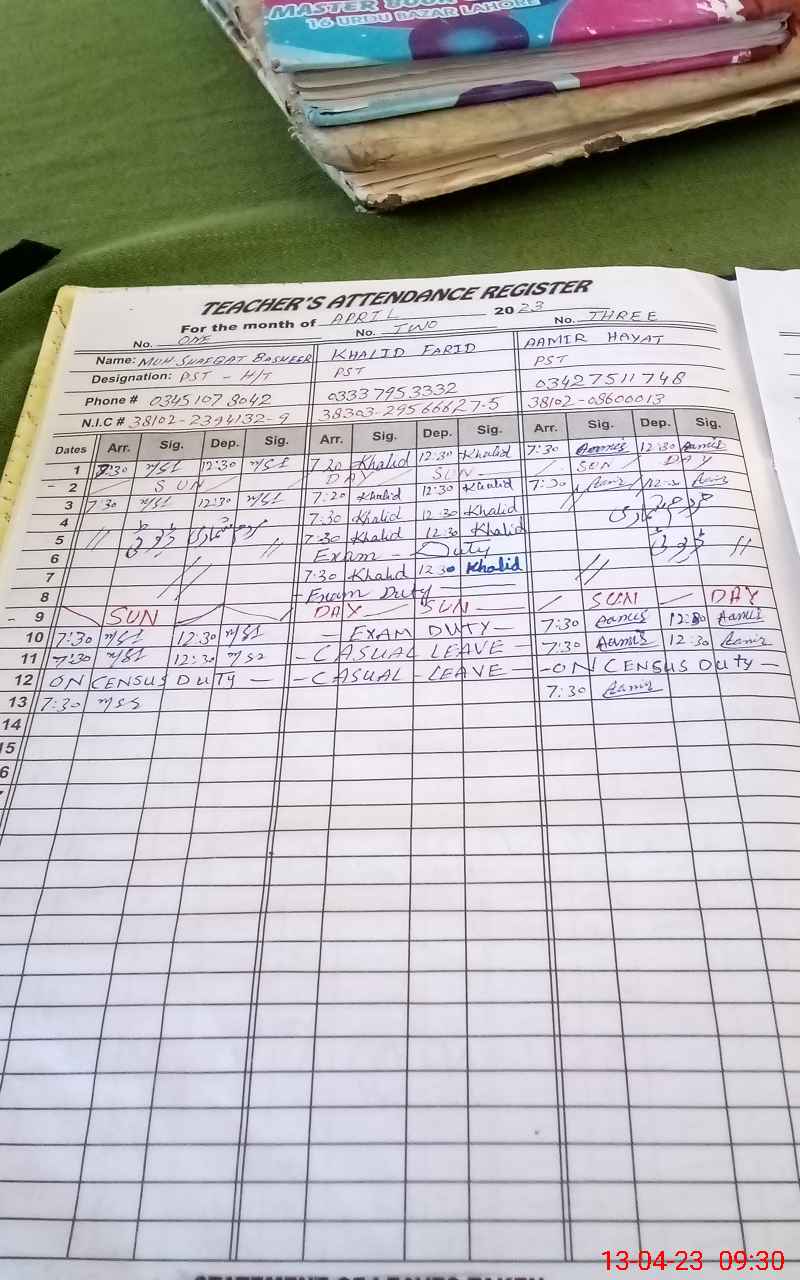 MASTER
16 URDU BAZAR LAHORE
TEACHER'S ATTENDANCE REGISTER
For the month of APRIL 2023
No. ONE No. TWO No. THREE
Name: MUH SHAFQAT BASHEER KHALID FARID AAMIR HAYAT
Designation: PST - H/T PST PST
Phone # 0345 107 8042 03337953332 03427511748
N.I.C # 38102-2394132-9 38303-29566627-5 38102-08600013
Dates Arr. Sig. Dep. Sig. Arr. Sig. Dep. Sig. Arr. Sig. Dep. Sig.
1 7:30 12:30 7:20 Khalid 12:30 Khalid 7:30 Aamir 12:30 Aamir
2 SUN DAY SUN SUN DAY
3 7:30 12:30 7:20 Khalid 12:30 Khalid 7:30 Aamir 12:30 Aamir
4 7:30 Khalid 12:30 Khalid
5 // // 7:30 Khalid 12:30 Khalid
6 Exam - Duty //
7 // 7:30 Khalid 12:30 Khalid //
8 - Exam Duty
9 SUN DAY SUN SUN DAY
10 7:30 12:30 - EXAM DUTY - 7:30 Aamir 12:30 Aamir
11 7:30 12:30 - CASUAL LEAVE 7:30 Aamir 12:30 Aamir
12 ON CENSUS DUTY - - CASUAL - LEAVE - ON CENSUS Duty -
13 7:30 7:30 Aamir
14
15
6
13-04-23 09:30